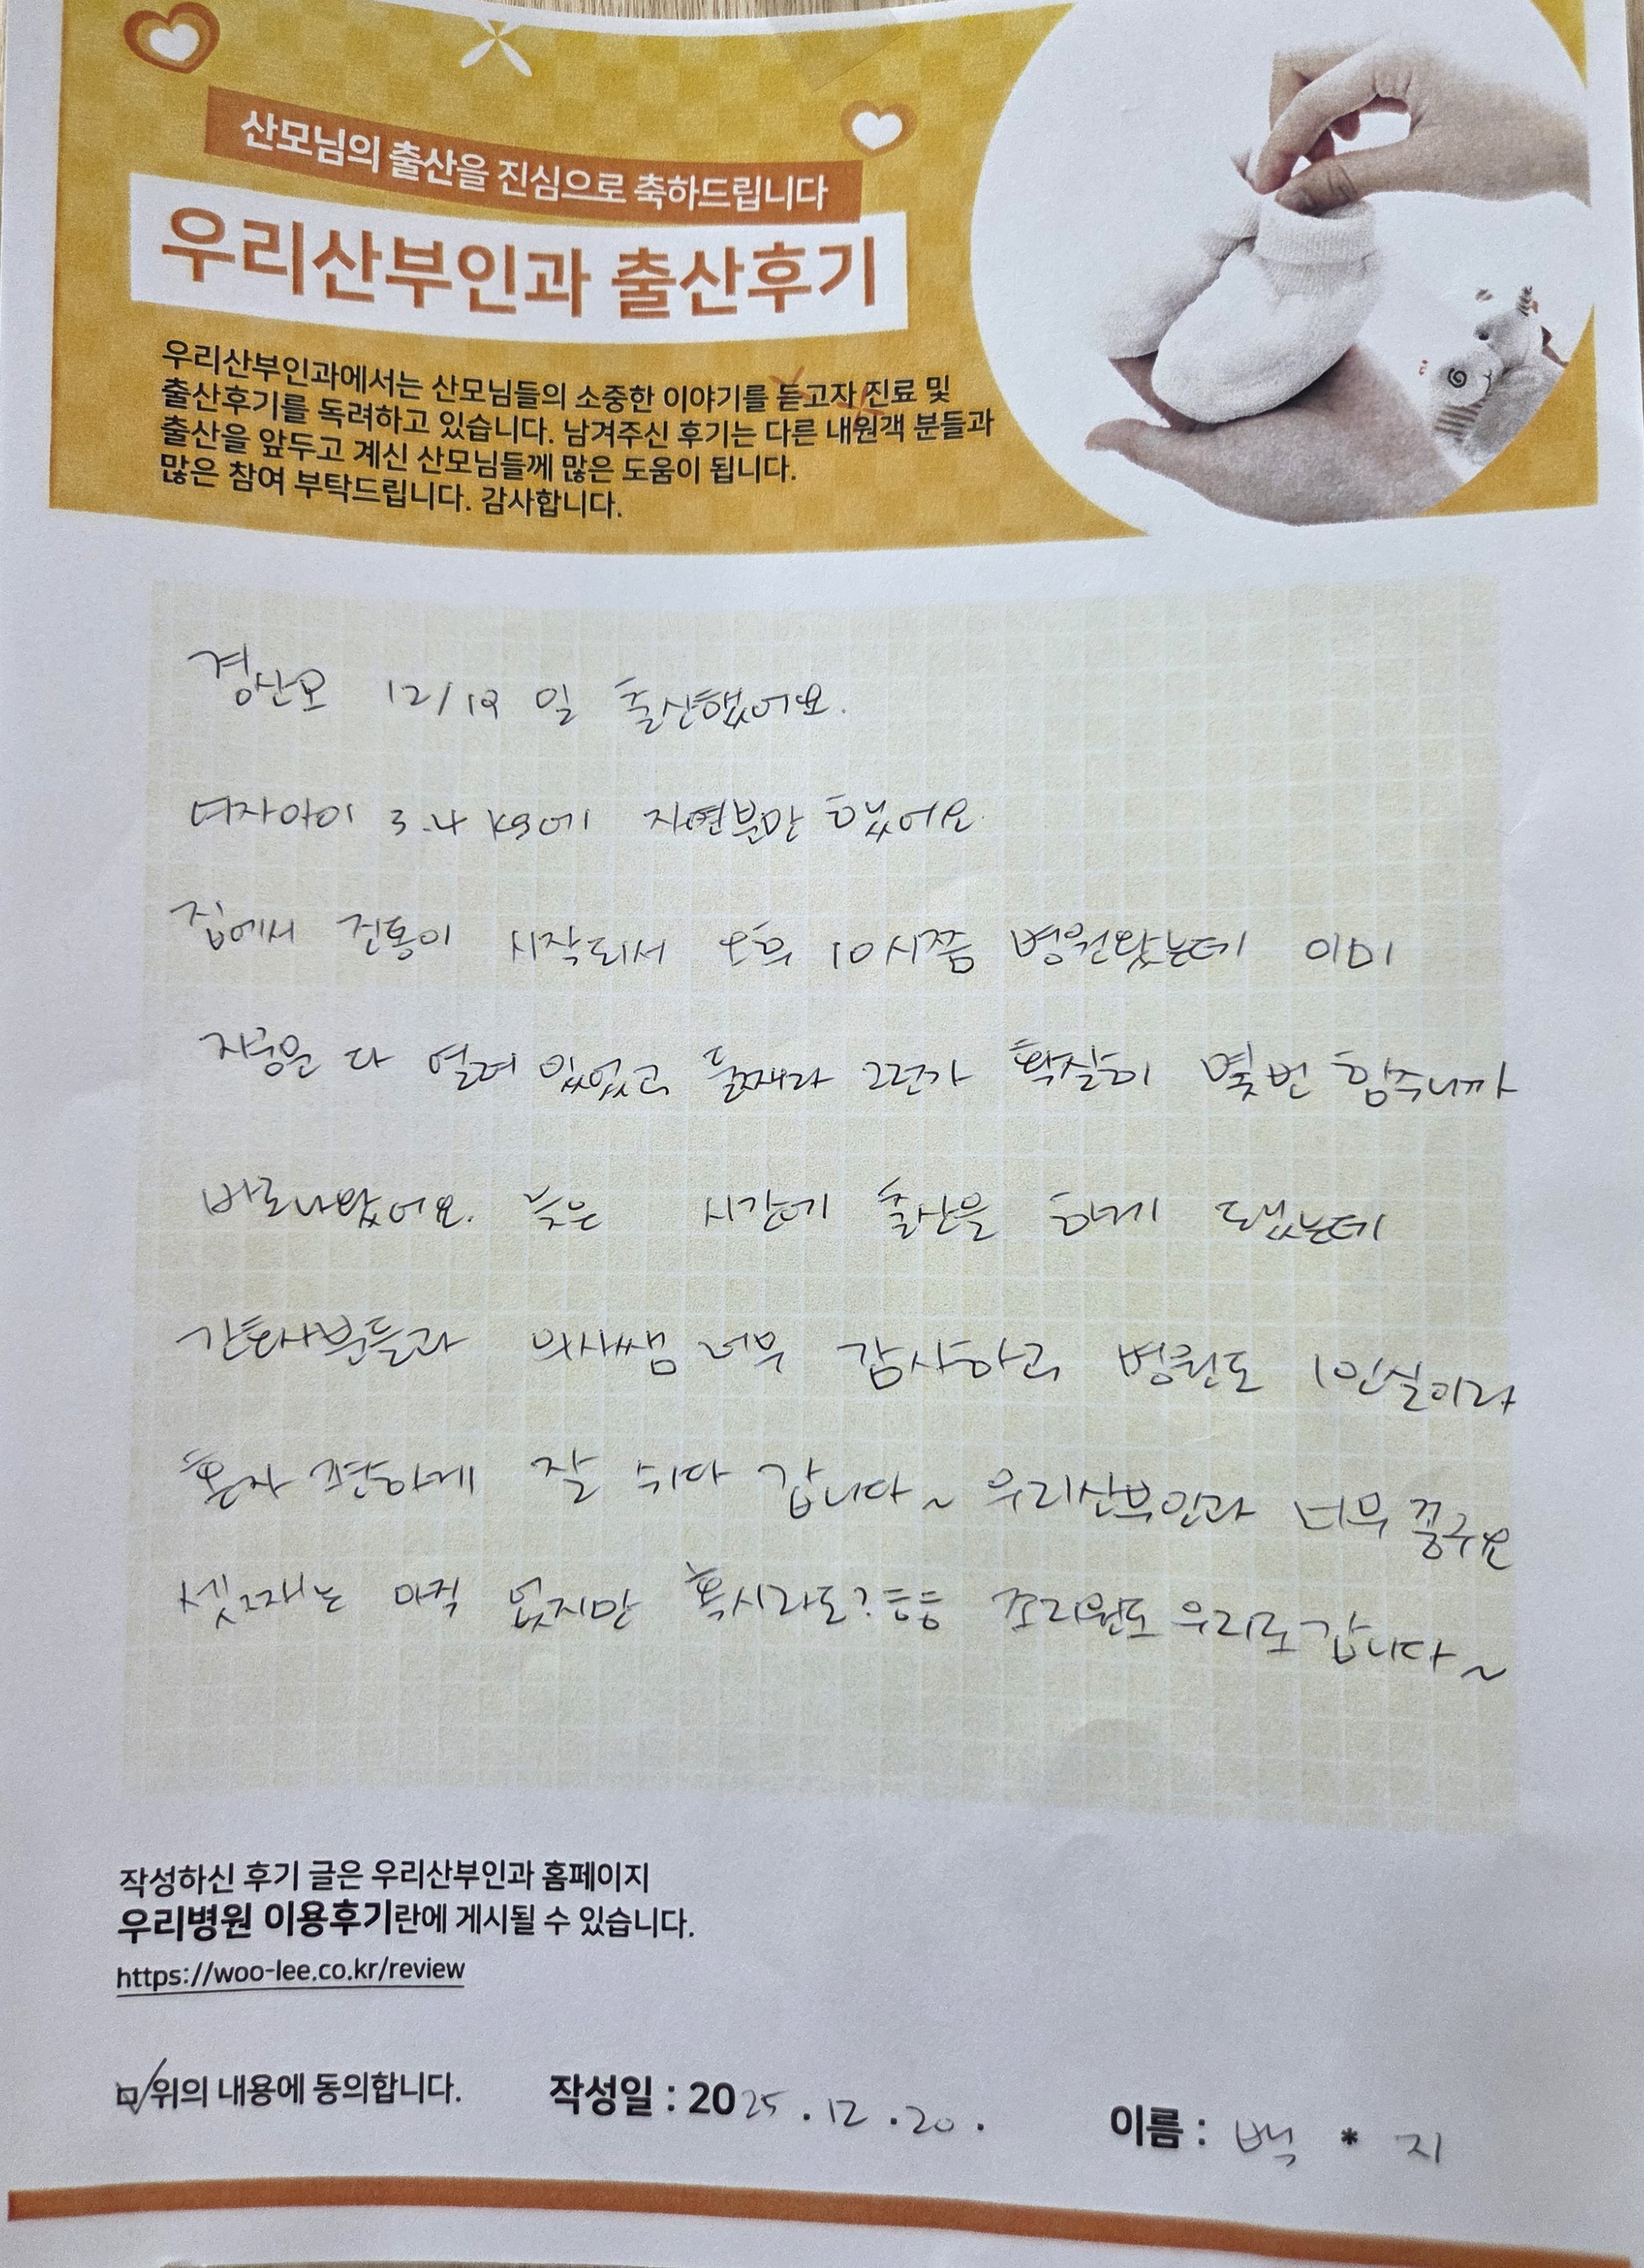 산모님의 출산을 진심으로 축하드립니다
우리산부인과 출산후기
우리산부인과에서는 산모님들의 소중한 이야기를 듣고자 진료 및
출산후기를 독려하고 있습니다. 남겨주신 후기는 다른 내원객 분들과
출산을 앞두고 계신 산모님들께 많은 도움이 됩니다.
많은 참여 부탁드립니다. 감사합니다.
경산모 12/18 일 출산했어요.
여자아이 3.4 kg에 자연분만 했어요
집에서 진통이 시작되서 오후 10시쯤 병원왔는데 이미
자궁문 다 열려 있었고 둘째라 그런가 확실히 몇번 힘주니까
바로나왔어요. 늦은 시간에 출산을 하게 됐는데
간호사분들과 의사쌤 너무 감사하고 병원도 1인실이라
혼자 편하게 잘 쉬다 갑니다~ 우리산부인과 너무 좋구요
셋째는 아직 없지만 혹시라도?ㅎㅎ 조리원도 우리로 갑니다~
작성하신 후기 글은 우리산부인과 홈페이지
우리병원 이용후기란에 게시될 수 있습니다.
https://woo-lee.co.kr/review
위의 내용에 동의합니다. 작성일 : 2025.12.20. 이름 : 백 * 지